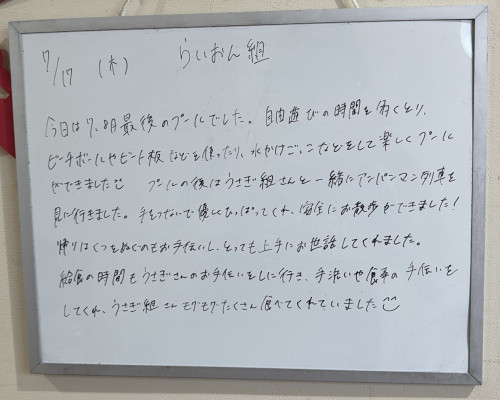 7/17 (木) らいおん組
今日は7、8月最後のプールでした。自由遊びの時間を多くとり、
ビーチボールやビート板などを使ったり、水かけごっこなどをして楽しくプール
ができました プールの後はうさぎ組さんと一緒にアンパンマン列車を
見に行きました。手をつないで優しくひっぱってくれ、安全にお散歩ができました！
帰りはくつをぬぐのもお手伝いし、とっても上手にお世話してくれました。
給食の時間もうさぎさんのお手伝いをしに行き、手洗いや食事の手伝いを
してくれ、うさぎ組さんモグモグたくさん食べてくれていました